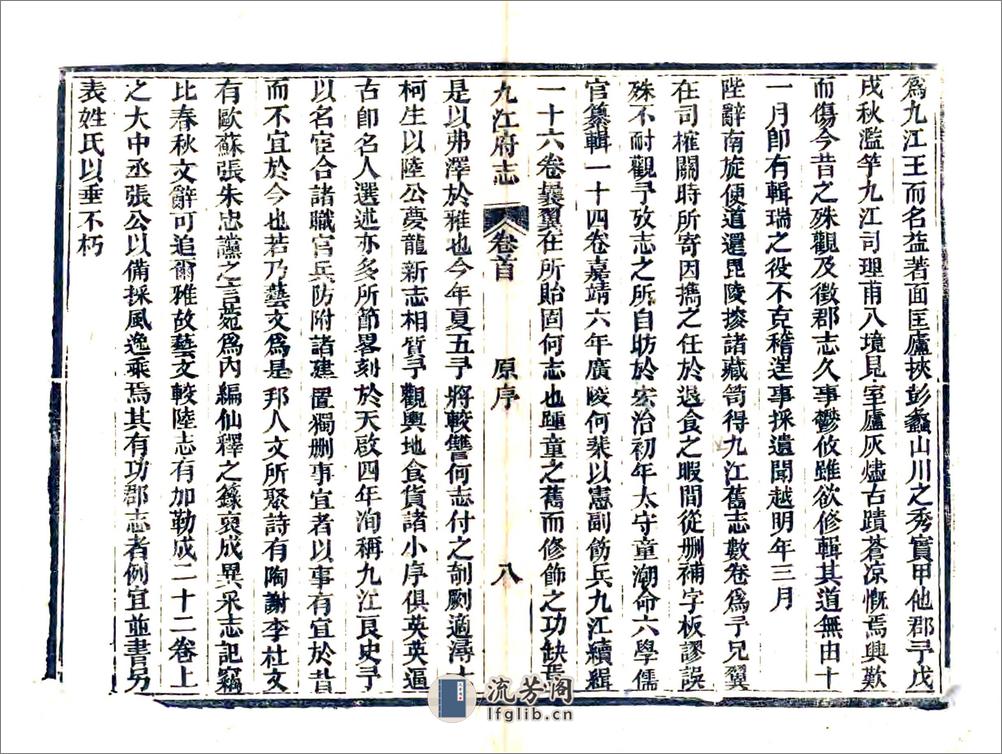 爲九江王而名益著面匡廬挾彭蠡山川之秀實甲他郡予戊
戌秋濫竽九江司理甫入境見室廬灰燼古蹟蒼凉慨焉興歎
而傷今昔之殊觀及徵郡志久事鬱攸雖欲修輯其道無由十
一月卽有輯瑞之役不克稽遑事採遺聞越明年三月
陛辭南旋便道還毘陵搜諸藏笥得九江舊志數卷爲予兄翼
在司榷關時所寄因攜之任於退食之暇間從刪補字板謬誤
殊不耐觀予攷志之所自昉於宏治初年太守童潮命六學儒
官纂輯一十四卷嘉靖六年廣陵何棐以憲副飭兵九江續緝
一十六卷曩翼在所貽固何志也踵童之舊而修飾之功缺焉
九江府志
卷首
原序
八
是以弗澤於雅也今年夏五予將較讐何志付之剞劂適潯
柯生以陸公夢龍新志相質予觀輿地食貨諸小序俱英英逼
古卽名人選述亦多所節畧刻於天啟四年洵稱九江良史予
以名宦合諸職官兵防附諸建置獨删事宜者以事有宜於昔
而不宜於今也若乃藝文爲是邦人文所聚詩有陶謝李杜文
有歐蘇張朱忠讜之言菀爲內編仙釋之籙裒成異采志記竊
比春秋文辭可追爾雅故藝文較陸志有加勒成二十二卷上
之大中丞張公以備採風逸乘焉其有功郡志者例宜並書另
表姓氏以垂不朽
流芳阁
lfglib.cn